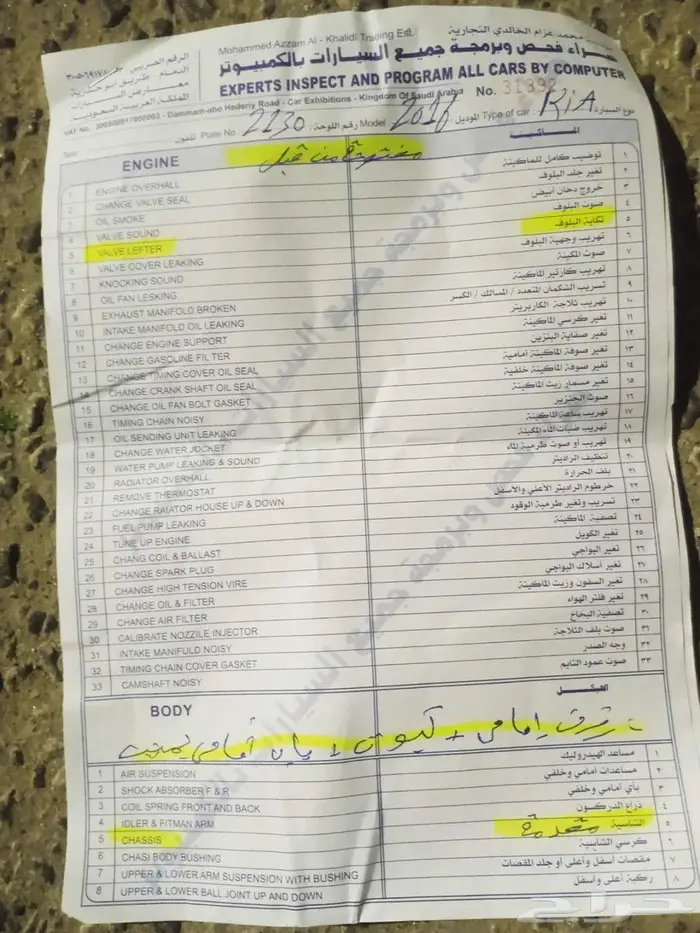 محمد عزام الخالدي التجارية
Mohammed Azzam Al - Khalidi Trading Est.
خبراء فحص وبرمجة جميع السيارات بالكمبيوتر
EXPERTS INSPECT AND PROGRAM ALL CARS BY COMPUTER
الدمام - طريق ابوحدرية
معارض السيارات
المملكة العربية السعودية
Dammam-abo Hederiy Road - Car Exhibitions - Kingdom Of Saudi Arabia No. 31392
VAT No.
Plate No. 2230 رقم اللوحة: Model: الموديل: Type of car: KIA نوع السيارة
ENGINE مفتوحة من قبل الماكينة
1 ENGINE OVERHALL توضيب كامل للماكينة ١
2 CHANGE VALVE SEAL تغير جلد البلوف ٢
3 OIL SMOKE خروج دخان أبيض ٣
4 VALVE SOUND صوت البلوف ٤
5 VALVE LEFTER تكاية البلوف ٥
6 VALVE COVER LEAKING تهريب وجهية البلوف ٦
7 KNOCKING SOUND صوت المكينة ٧
8 OIL FAN LESKING تهريب كارتير الماكينة ٨
9 EXHAUST MANIFOLD BROKEN تسريب الشكمان المتعدد / المسالك / الكسر ٩
10 INTAKE MANIFOLD OIL LEAKING تهريب ثلاجة الكاربريتر ١٠
11 CHANGE ENGINE SUPPORT تغير كرسي الماكينة ١١
12 CHANGE GASOLINE FILTER تغير صفاية البنزين ١٢
13 CHANGE TIMING COVER OIL SEAL تغير صوفة الماكينة أمامية ١٣
14 CHANGE CRANK SHAFT OIL SEAL تغير صوفة الماكينة خلفية ١٤
15 CHANGE OIL FAN BOLT GASKET تغير مسمار زيت الماكينة ١٥
16 TIMING CHAIN NOISY صوت الجنزير ١٦
17 OIL SENDING UNIT LEAKING تهريب ساعة الماكينة ١٧
18 CHANGE WATER JOCKET تهريب صبات الماء الماكينة ١٨
19 WATER PUMP LEAKING & SOUND تهريب او صوت طرمبة الماء ١٩
20 RADIATOR OVERHALL تنظيف الراديتر ٢٠
21 REMOVE THERMOSTAT بلف الحرارة ٢١
22 CHANGE RAIATOR HOUSE UP & DOWN خرطوم الراديتر الأعلي والأسفل ٢٢
23 FUEL PUMP LEAKING تسريب وتغير طرمبة الوقود ٢٣
24 TUNE UP ENGINE تصفية الماكينة ٢٤
25 CHANG COIL & BALLAST تغير الكويل ٢٥
26 CHANGE SPARK PLUG تغير البواجي ٢٦
27 CHANGE HIGH TENSION VIRE تغير أسلاك البواجي ٢٧
28 CHANGE OIL & FILTER تغير السفون وزيت الماكينة ٢٨
29 CHANGE AIR FILTER تغير فلتر الهواء ٢٩
30 CALIBRATE NOZZILE INJECTOR تصفية البخاخ ٣٠
31 INTAKE MANIFULD NOISY صوت بلف الثلاجة ٣١
32 TIMING CHAIN COVER GASKET وجه الصدر ٣٢
33 CAMSHAFT NOISY صوت عمود التايم ٣٣
BODY الهيكل
1 AIR SUSPENSION مساعد الهيدروليك ١
2 SHOCK ABSORBER F & R مساعدات أمامي وخلفي ٢
3 COIL SPRING FRONT AND BACK ياي أمامي وخلفي ٣
4 IDLER & FITMAN ARM ذراع الدركسون ٤
5 CHASSIS الشاسية مقدمة ٥
6 CHASI BODY BUSHING كرسي الشاسية ٦
7 UPPER & LOWER ARM SUSPENSION WITH BUSHING مقصات أسفل وأعلى أو جلد المقصات ٧
8 UPPER & LOWER BALL JOINT UP AND DOWN ركبة أعلى وأسفل ٨
حراج